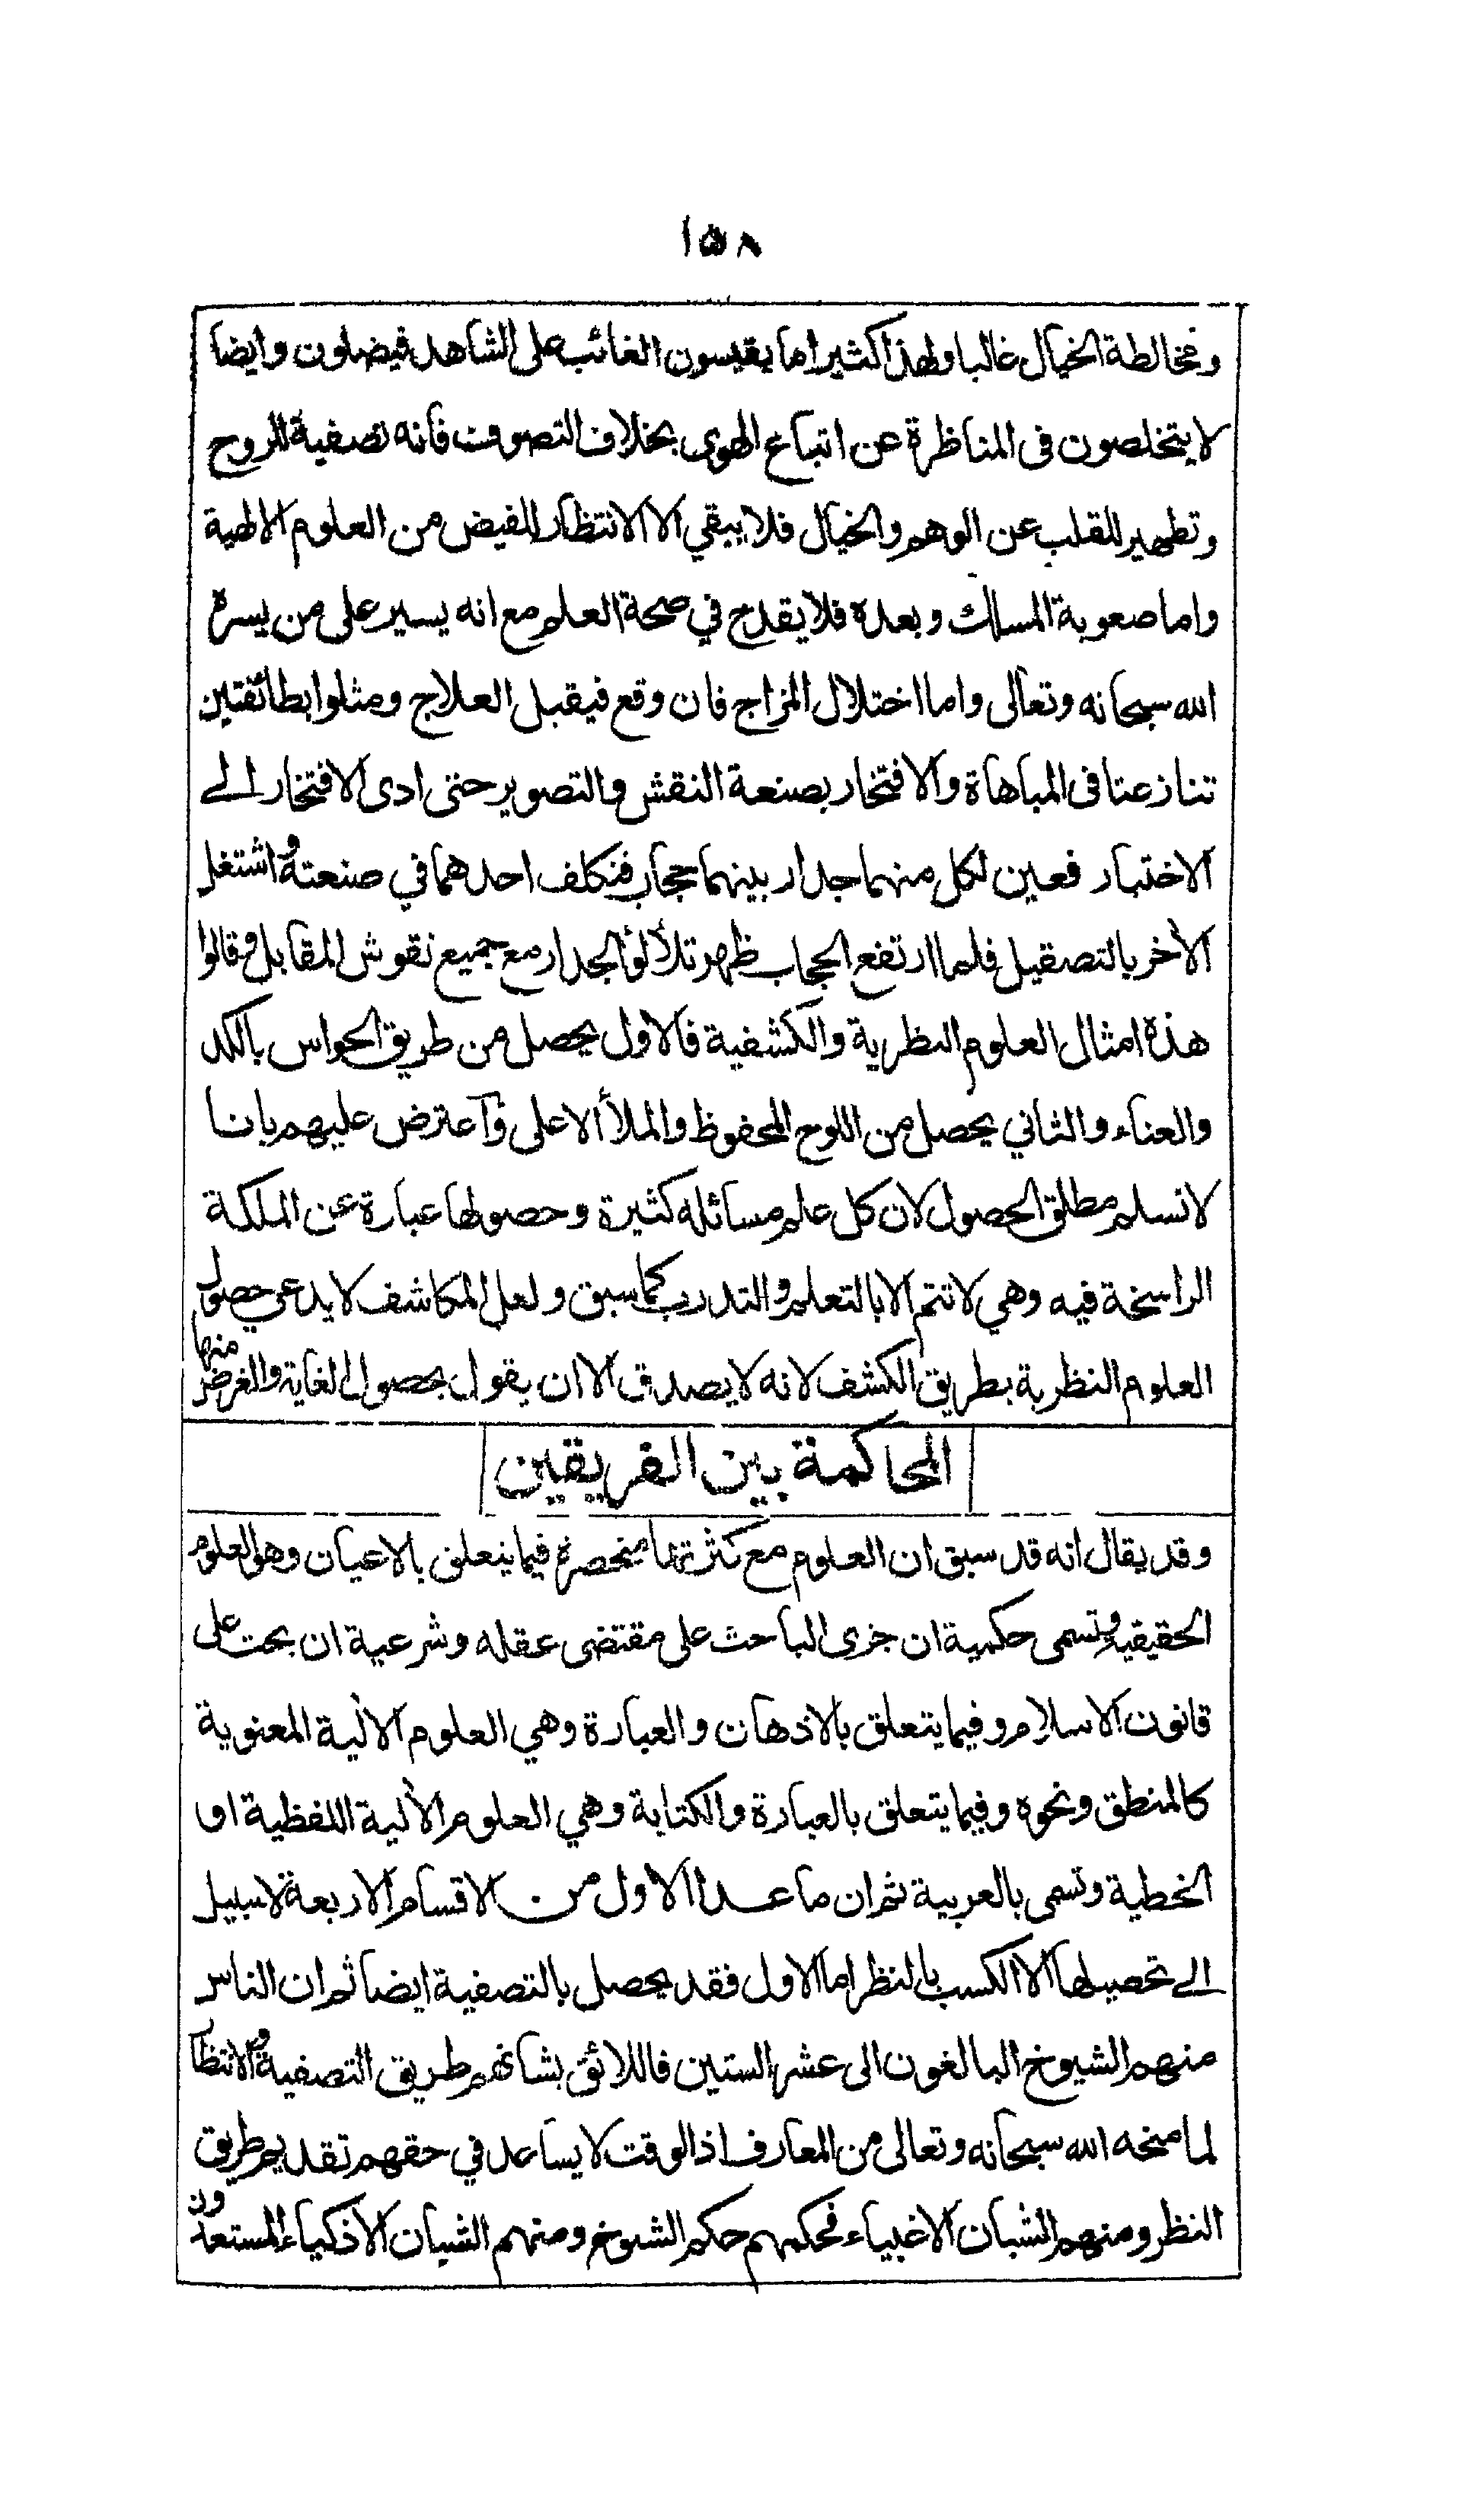 ١٥٨
ومخالطة الخيال غالبا ولهذا كثيرا ما يقيسون الغائب على الشاهد فيضلون وايضا
لا يتخلصون فى المناظرة عن اتباع الهوى بخلاف التصوف فأنه تصفية للروح
وتطهير للقلب عن الوهم والخيال فلا يبقي الا الانتظار للفيض من العلوم الالهية
واما صعوبة المسالك وبعده فلا يقدح في صحة العلم مع انه يسير على من يسره
الله سبحانه وتعالى واما اختلال المزاج فان وقع فيقبل العلاج ومثلوا بطائفتين
تنازعتا فى المباهاة والافتخار بصنعة النقش والتصوير حتى ادى الافتخار الے
الاختبار فعين لكل منهما جدار بينهما حجاب فتكلف احدهما في صنعته واشتغل
الأخر بالتصقيل فلما ارتفع الحجاب ظهر تلألؤ الجدار مع جميع نقوش المقابل وقالوا
هذه امثال العلوم النظرية والكشفية فالاول يحصل من طريق الحواس بالكد
والعناء والثاني يحصل من اللوح المحفوظ والملأ الاعلى وآعترض عليهم بانا
لا نسلم مطلق الحصول لان كل علم مسائله كثيرة وحصولها عبارة عن الملكة
الراسخة فيه وهي لا تتم الا بالتعلم والتدرب كما سبق ولعل المكاشف لا يدعي حصول
العلوم النظرية بطريق الكشف لانه لا يصدق الا ان يقول بحصول الغاية والغرض منها
المحاكمة بين الفريقين
وقد يقال انه قد سبق ان العلوم مع كثرتها منحصرة فيما يتعلق بالاعيان وهو العلوم
الحقيقية وتسمى حكمية ان جرى الباحث على مقتضى عقله وشرعية ان بحث على
قانون الاسلام وفيما يتعلق بالاذهان والعبارة وهي العلوم الألية المعنوية
كالمنطق ونحوه وفيما يتعلق بالعبارة والكتابة وهي العلوم الألية اللفظية او
الخطية وتسمى بالعربية ثم ان ما عدا الاول من الاقسام الاربعة لا سبيل
الے تحصيلها الا الكسب بالنظر اما الاول فقد يحصل بالتصفية ايضا ثم ان الناس
منهم الشيوخ البالغون الى عشر الستين فاللائق بشانهم طريق التصفية والانتظار
لما منحه الله سبحانه وتعالى من المعارف اذ الوقت لا يساعد في حقهم تقديم طريق
النظر ومنهم الشبان الاغبياء فحكمهم حكم الشيوخ ومنهم الشبان الأذكياء المستعدون